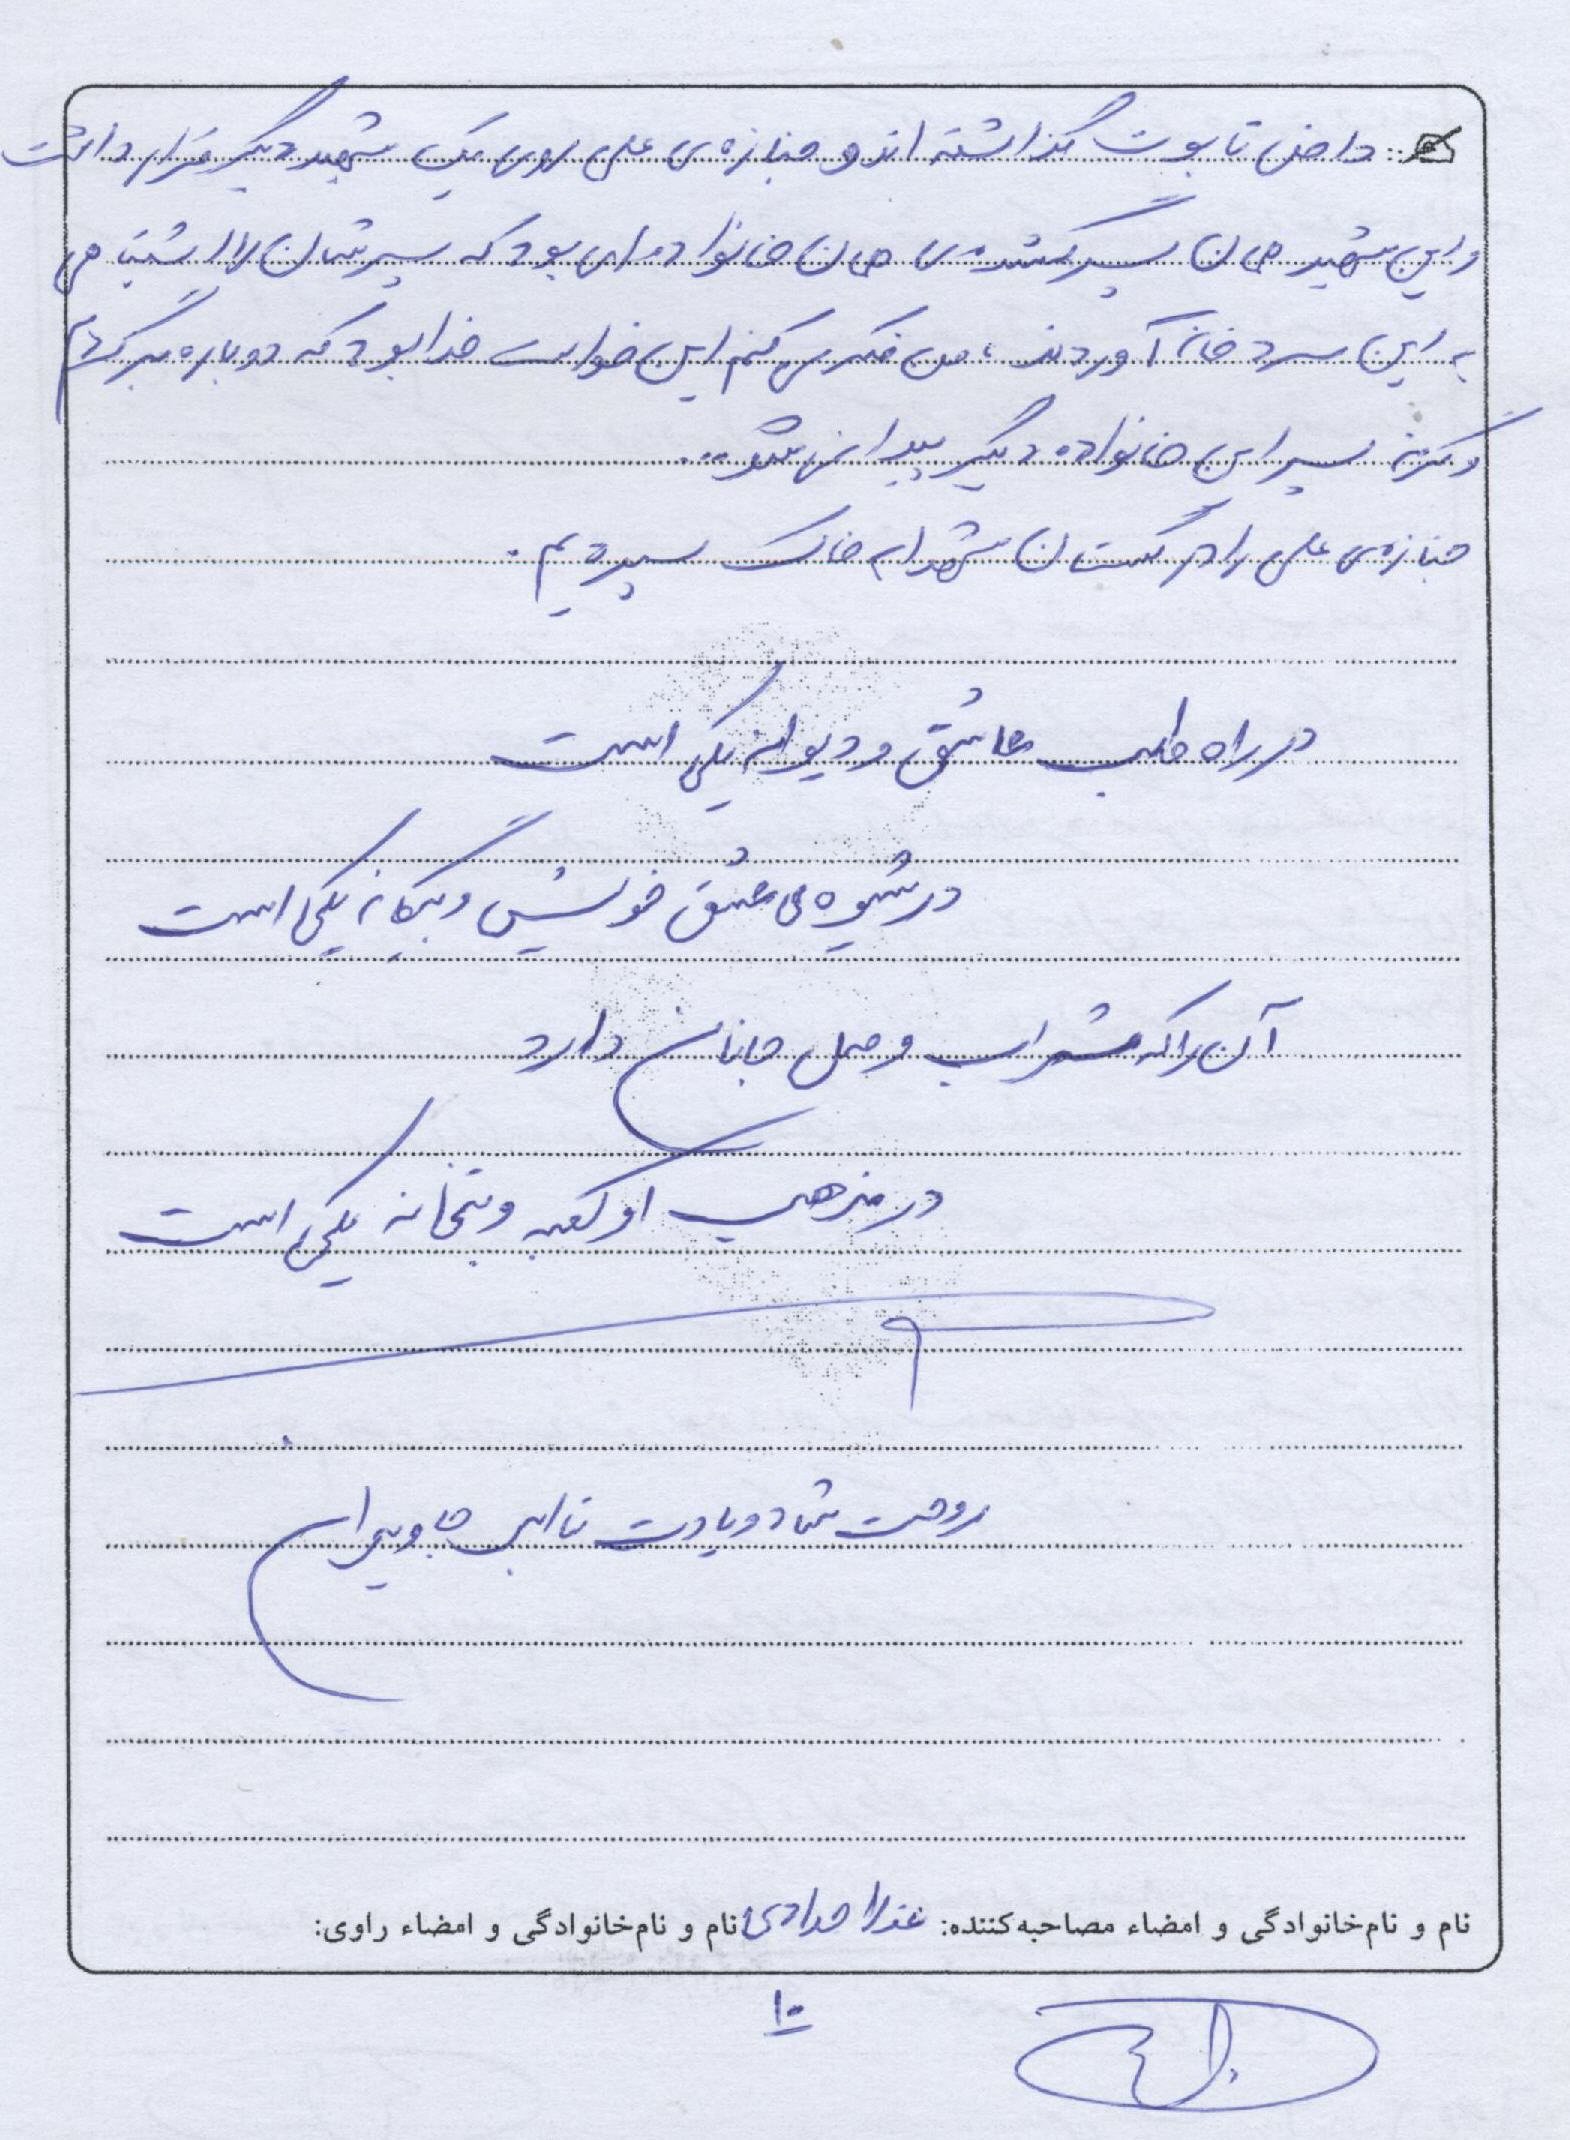 داخل تابوت گذاشته اند و جنازه‌ی علی روی یک شهید دیگر قرار داشت
و این شهید همان پسر گمشده‌ی همان خانواده‌ای بود که پسرشان را اشتباهی
به این سردخانه آوردند، من فکر می کنم این خواست خدا بود که دوباره برگردم
وگرنه پسر این خانواده دیگر پیدا نمی شد...
جنازه‌ی علی را در گلستان شهدا به خاک سپردیم.
در راه طلب عاشق و دیوانه یکی است
در شیوه ی عشق خویش و بیگانه یکی است
آن را که شراب وصل جانان دارد
در مذهب او کعبه و بتخانه یکی است
روحت شاد و یادت تا ابد جاویدان
نام و نام‌خانوادگی و امضاء مصاحبه‌کننده: عذرا حدادی نام و نام‌خانوادگی و امضاء راوی:
۱۰